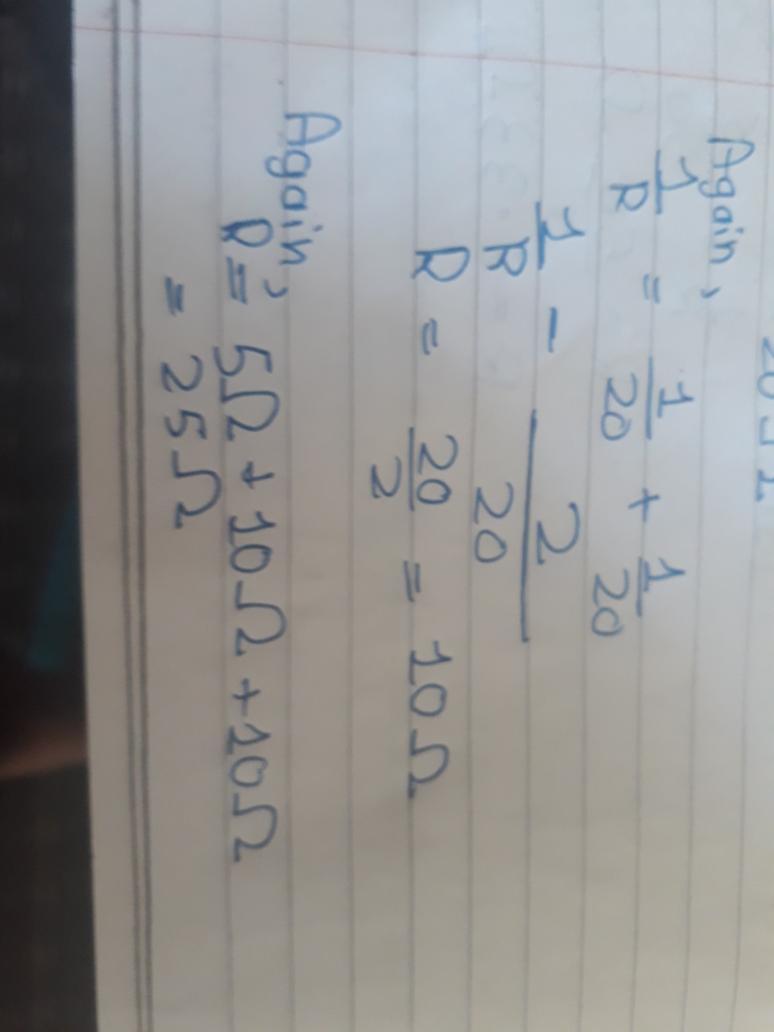 Again,
1/R = 1/20 + 1/20
1/R - 2/20
R = 20/2 = 10Ω
Again,
R = 5Ω + 10Ω + 10Ω
= 25Ω